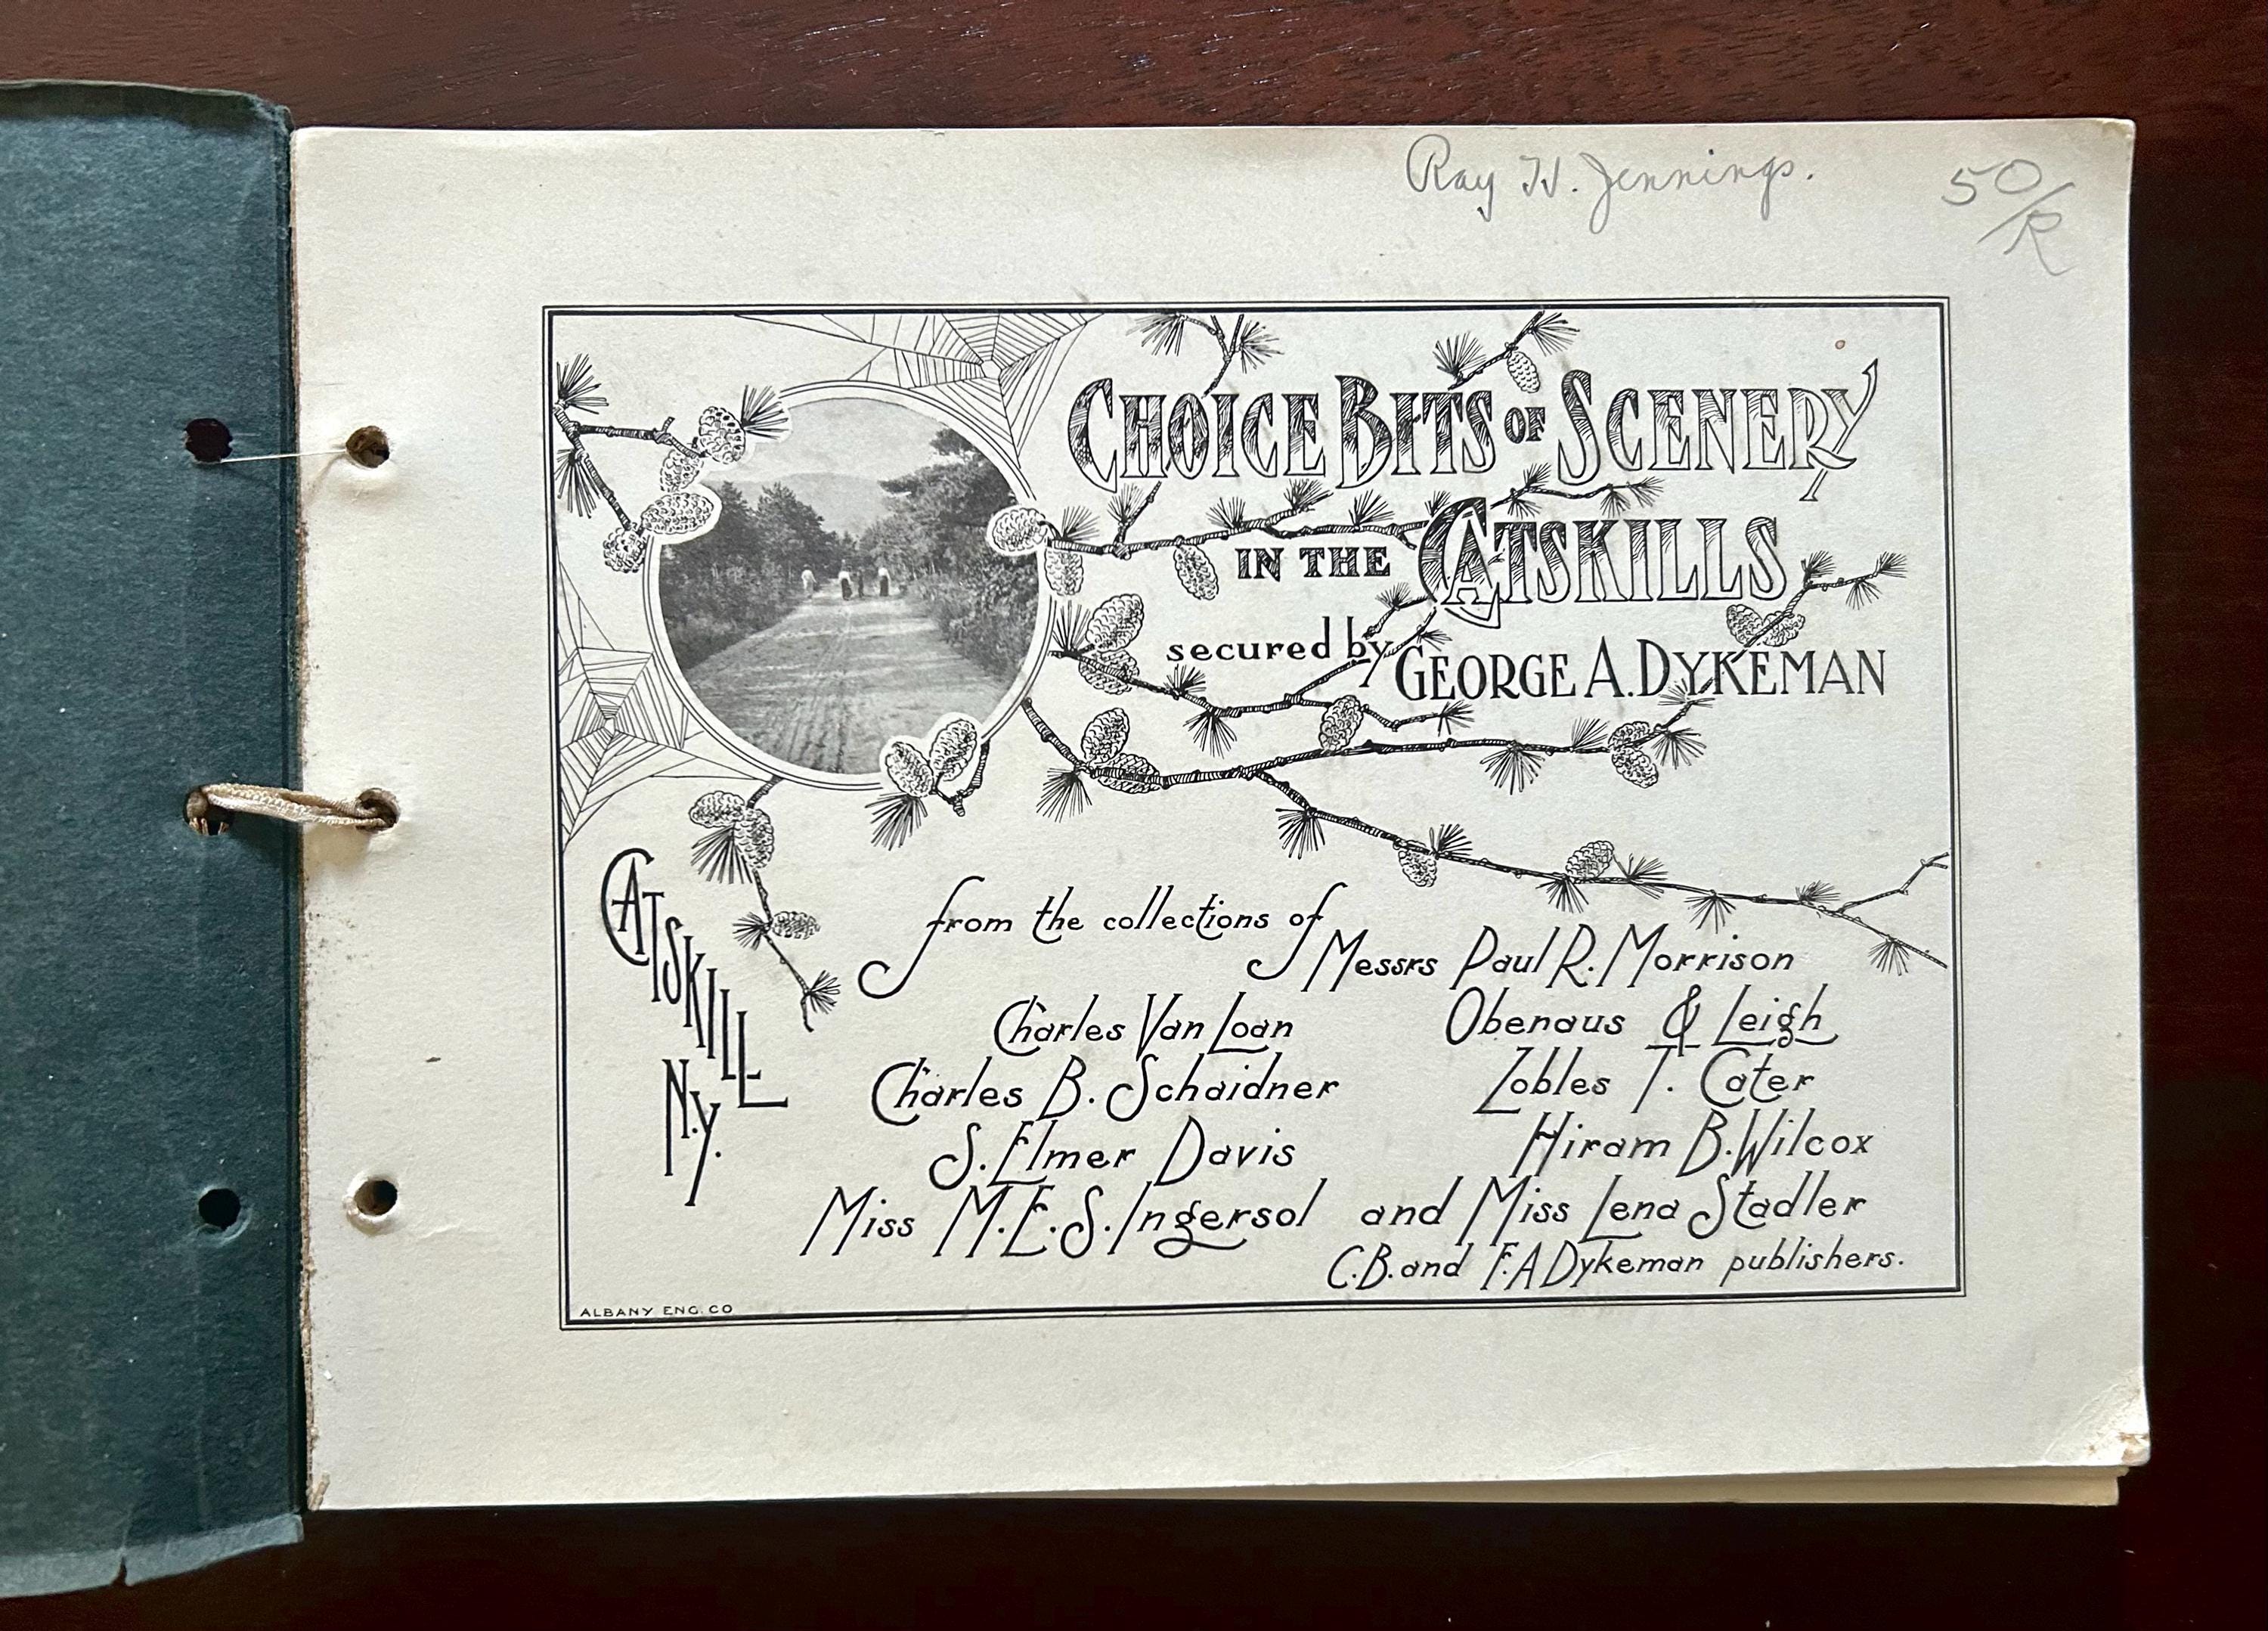 Ray H. Jennings.
50/R
CHOICE BITS OF SCENERY
IN THE CATSKILLS
secured by GEORGE A. DYKEMAN
CATSKILL
N.Y.
from the collections of
Messrs Paul R. Morrison
Charles Van Loan
Obenaus & Leigh
Charles B. Schaidner
Zobles T. Cater
S. Elmer Davis
Hiram B. Wilcox
Miss M.E.S. Ingersol and Miss Lena Stadler
C.B. and F.A Dykeman publishers.
ALBANY ENG. CO